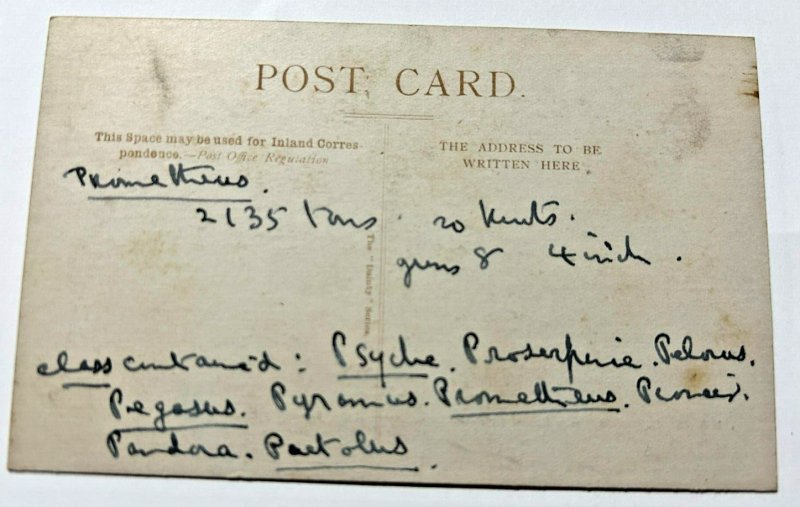 POST CARD.
This Space may be used for Inland Corres-
pondence.—Post Office Regulation
THE ADDRESS TO BE
WRITTEN HERE
Prometheus.
2135 tons. 20 knots.
guns 8 4 inch.
The "Dainty" Series.
class contained: Psyche. Proserpine. Pelorus.
Pegasus. Pyramus. Prometheus. Pioneer.
Pandora. Pactolus.